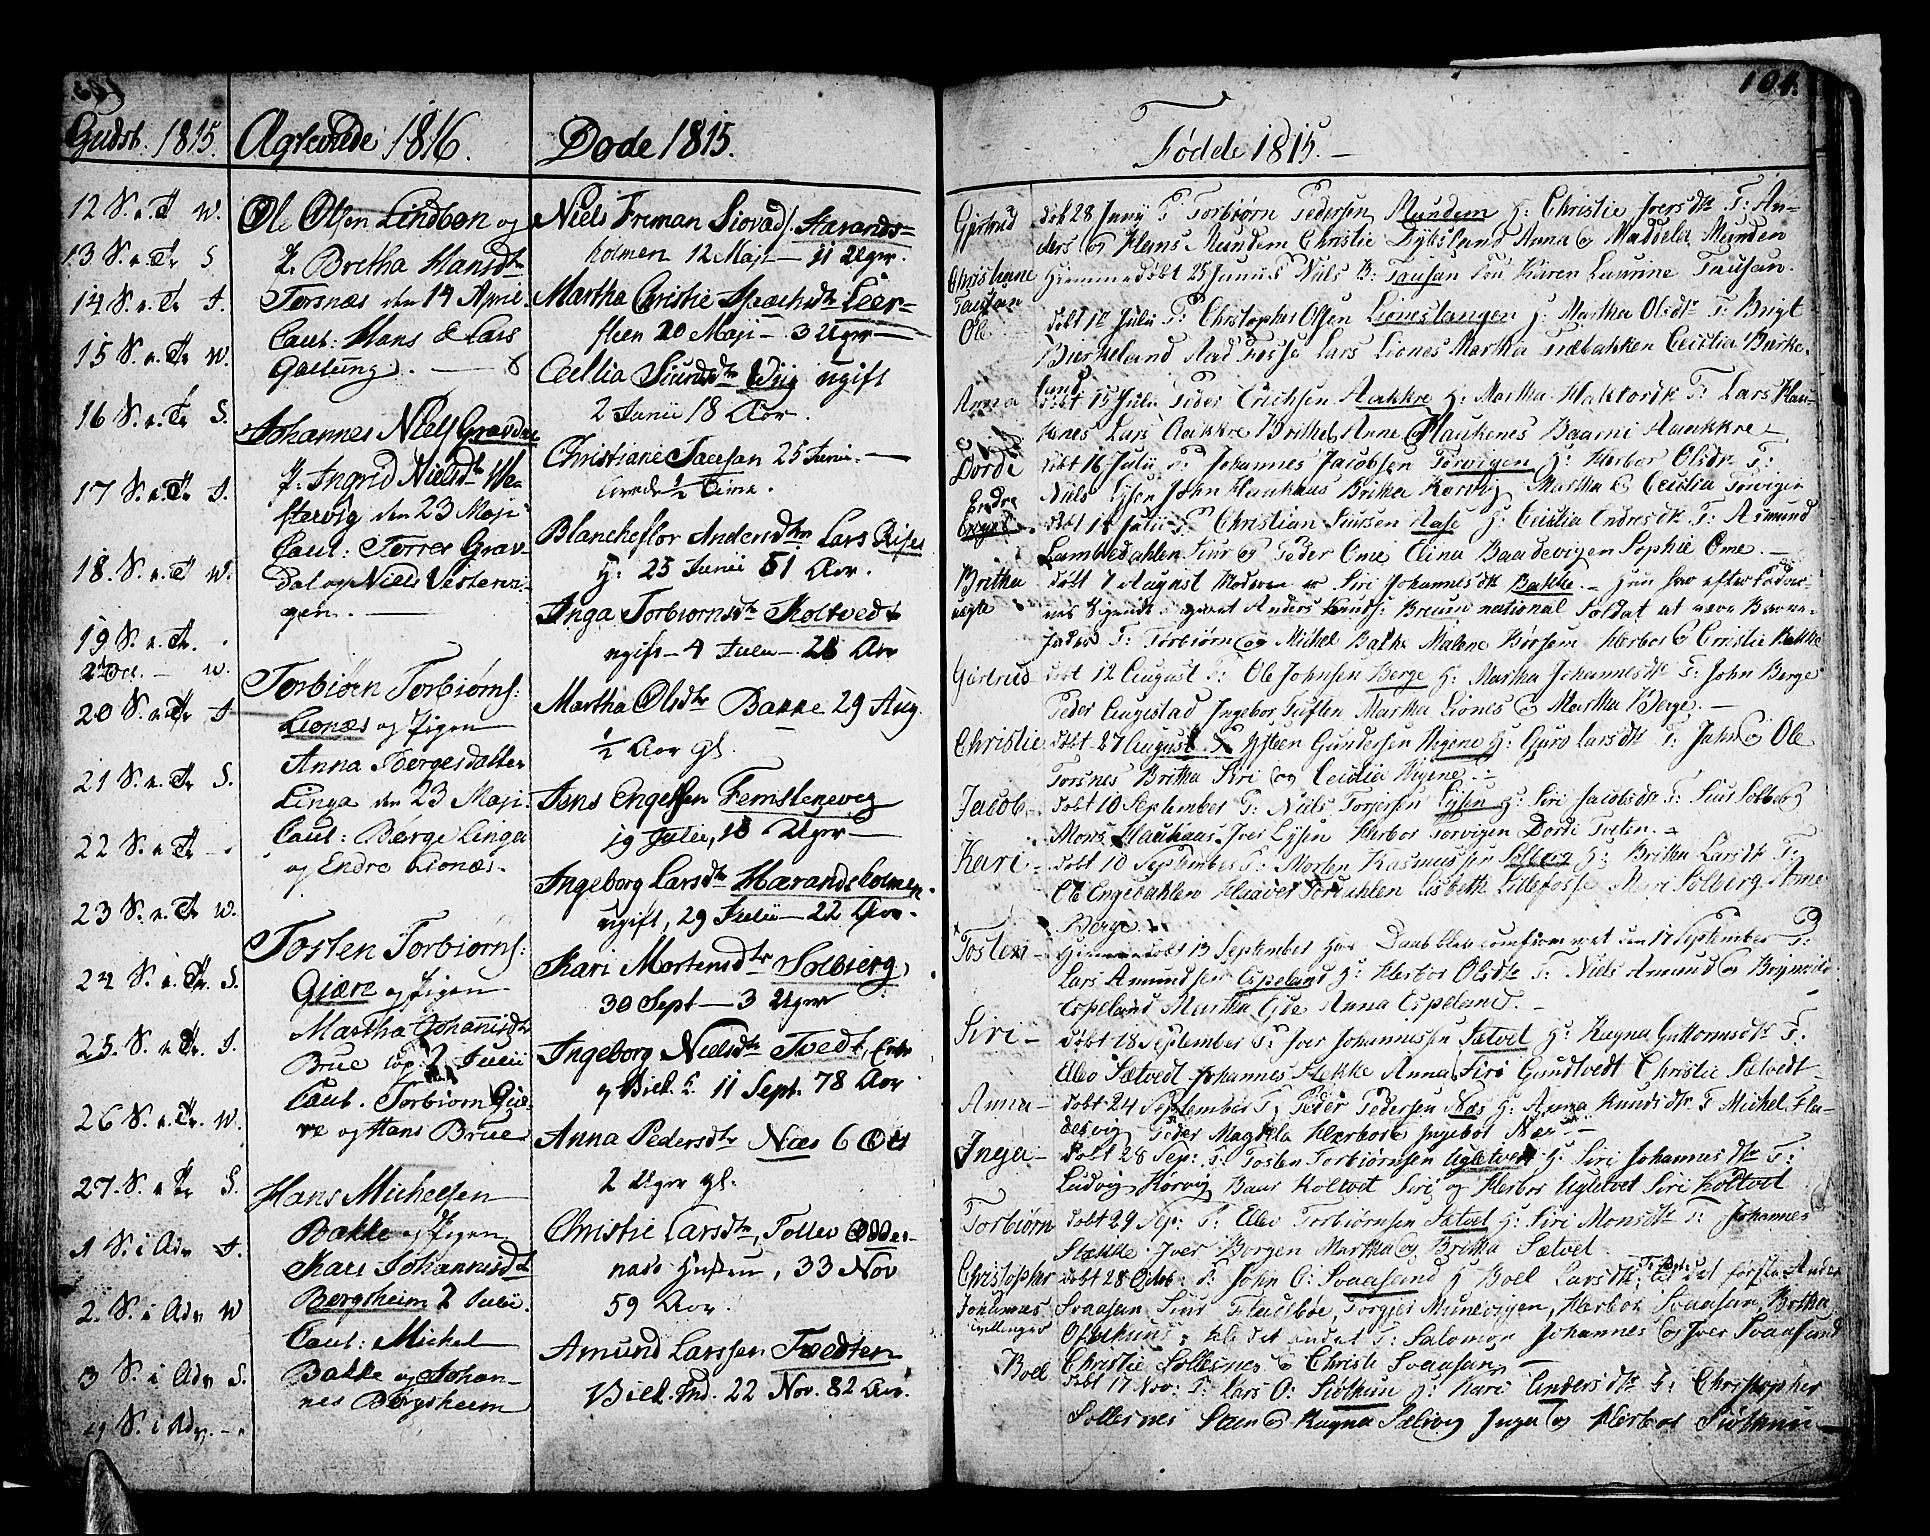 104.
Gudst. 1815.
12 S. e. Tr W.
13 S. e. Tr S
14 S. e. Tr J.
15 S. e. Tr W
16 S. e. Tr S.
17 S. e. Tr J.
18. S. e. Tr W.
19 S. e. Tr.
W.
20 S. e. Tr J
21 S. e. Tr S.
22 S. e. Tr
23 S. e. Tr W.
24 S. e. Tr. S.
25. S. e. Tr. J.
26 S. e. Tr. W
27. S. e. Tr S.
1 S. i Adv J.
2. S. i Adv W
3 S. i Adv S.
4 S. i Adv.
Ægteviede 1816.
Ole Olsen Lindbøn og
P. Bretha Hansdtr
Torsnæs den 14 April
Caut: Hans & Lars
Galtung.
Johannes Niels. Gravdal
P. Ingrid Nielsdtr We-
stervig den 23 Maji
Caut: Torrer Grav-
dal og Niels Vestervi-
gen.
Torbiøen Torbiørns:
Lionæs og Pigen
Anna Børgesdatter
Linga den 23 Maji
Caut: Børge Linga
og Endre Lionæs.
Tosten Torbiørns:
Giære og Pigen
Martha Johannisdtr
Brue cop: 2 Julii
Caut. Torbiørn Giæ-
re og Hans Brue
Hans Michelsen
Bakke og Pigen
Kari Johannisdtr
Bergsheim 2 Julii.
Caut: Michel
Bakke og Johan-
nes Bergsheim
Døde 1815.
Niels Friman Siovad/: Harands-
holmen 12 Maji — 11 Uger.
Martha Christie Leer-
steen 20 Maji — 3 Uger
Cecilia Siursdtr Wiig ugift
2 Junii 18 Aar.
Christiane Tausan 25 Juni.
levede ½ Time.
Blancheflor Andersdtr Lars Rises
H: 25 Junii 51 Aar.
Inga Torbiornsdtr Holtvedt
ugift — 4 Julii — 28 Aar
Martha Olsdtr Bakke 29 Aug.
½ Aar gl.
Jens Engelsen Femstenevig
19 Julii, 18 Uger
Ingeborg Larsdtr Harandsholmen.
ugift, 29 Julii — 22 Aar.
Kari Mortensdtr Solbierg
30 Sept — 3 Uger
Ingeborg Nielsdtr Tvedt, Enke
11 Sept. 78 Aar
Anna Pedersdtr Næs 6 Oct
2 Uger gl.
Christie Larsdtr, Tollev Odder-
næs Hustru, 33 Nov
59 Aar.
Amund Larssen Tvedten
22 Nov. 82 Aar.
Fødde 1815.
Giertrud døbt 28 Junii F Torbiørn Pedersen Mundem H: Christie Ivers dtr F: An-
ders og Hans Mundem Christie Dybsland Anna og Maddela Munden
Christiane Hiemmedøbt 25 Junii F Niels B: Tausan Fru Karen Laurine Tausan.
Tausan
Ole døbt Julii F: Christopher Olsen Lioneslangen H: Martha Olsdtr F: Brigt
Birkeland Aad Fosse Lars Liones Martha Træbakken Cecilia Birke-
land
Anna døbt 15 Julii Peder Erichsen Aakkre H: Martha Haktordtr F: Lars Hau-
kenes Lars Aakkre Brithe, Anne Haukenes Baarni Aakkre
Dorde døbt 16 Julii F: Johannes Jacobsen Torvigen H: Herbor Olsdtr F:
Niels Lysen John Haukaas Britha Korvig Martha & Cecilia Torvigen
Endre døbt Julii F: Christian Siursen Aase H: Cecilia Endres dtr F: Asmund
Lammedahlen Siur og Peder Ome Elina Baadevigen Sophie Ome.
Britha døbt 7 August Moderen er Siri Johannesdtr Bakke.
uægte Anders Knuds: Breum national Soldat at være Barne-
fader F: Torbiørn og Michel Bakke Malene Børsem Herbor & Christie Bakke
Giertrud døbt 12 August F: Ole Johnsen Berge H: Martha Johannesdtr F: John Berge
Peder Augestad Ingebor Tuften Martha Liones & Martha Berge.
Christie døbt 27 August F: Østen Gundersen Hegene H: Guro Larsdtr F: John & Ole
Torsnes Britha Siri og Cecilia Hegene.
Jacob døbt 10 September F: Niels Torjersen Lysen H: Siri Jacobsdtr F: Siur Solberg
Mons Haukaas Iver Lysen Herbor Torvigen Dordi Tveten.
Kari døbt 10 September F: Morten Rasmussen Solberg H: Britha Larsdtr F:
Ole Engedahlen Haaver Lisbeth Lillefosse Mari Solberg Anne
Berge
Tosten Hiemmedøbt 13 September Daab blev confirmeret den 17 September F:
Lars Amundsen Espeland H: Herbor Olsdtr F: Niels Amund & Brynild
Espeland Martha Eide Anna Espeland.
Siri døbt 18 September F: Iver Johannessen Sætvet H: Ragna Guttormsdtr F:
Elev Sætvedt Johannes Stekke Anna, Siri Gundtvedt Christie Sætvedt
Anna døbt 24 September F: Peder Pedersen Næs H: Anna Knudsdtr F Michel Fla-
Peder Magdela Herbor & Ingebor Næs
Inga døbt 28 Sep: F: Tosten Torbiørnsen Ugletvedt H: Siri Johannes dtr F:
Ludvig Korvig Baar Holtvet Siri og Herbor Ugletvet Siri Holtvet
Torbiørn døbt 29 Sep: F: Elev Torbiørnsen Sætvet H: Siri Monsdtr F: Johannes
Stække Iver Borgen Martha og Britha Sætvet
Christopher døbt 28 Octob: F: John O: Svaasand H Boel Larsdtr til det første Ander
Johannes Svaasan Siur Flaatbøe, Torgier Munevigen, Herbor Svaasan, Britha
tvillinger Ofækuus, til det andet F: Salomon Johannes og Iver Svaasand
Christie Sollesnes & Christi Svaasan
Boel døbt 17 Nov: F: Lars O: Siøthun H: Kari Andersdtr F: Christopher
Sollesnes Sam & Ragna Sælevig Inger og Herbor Siøthun